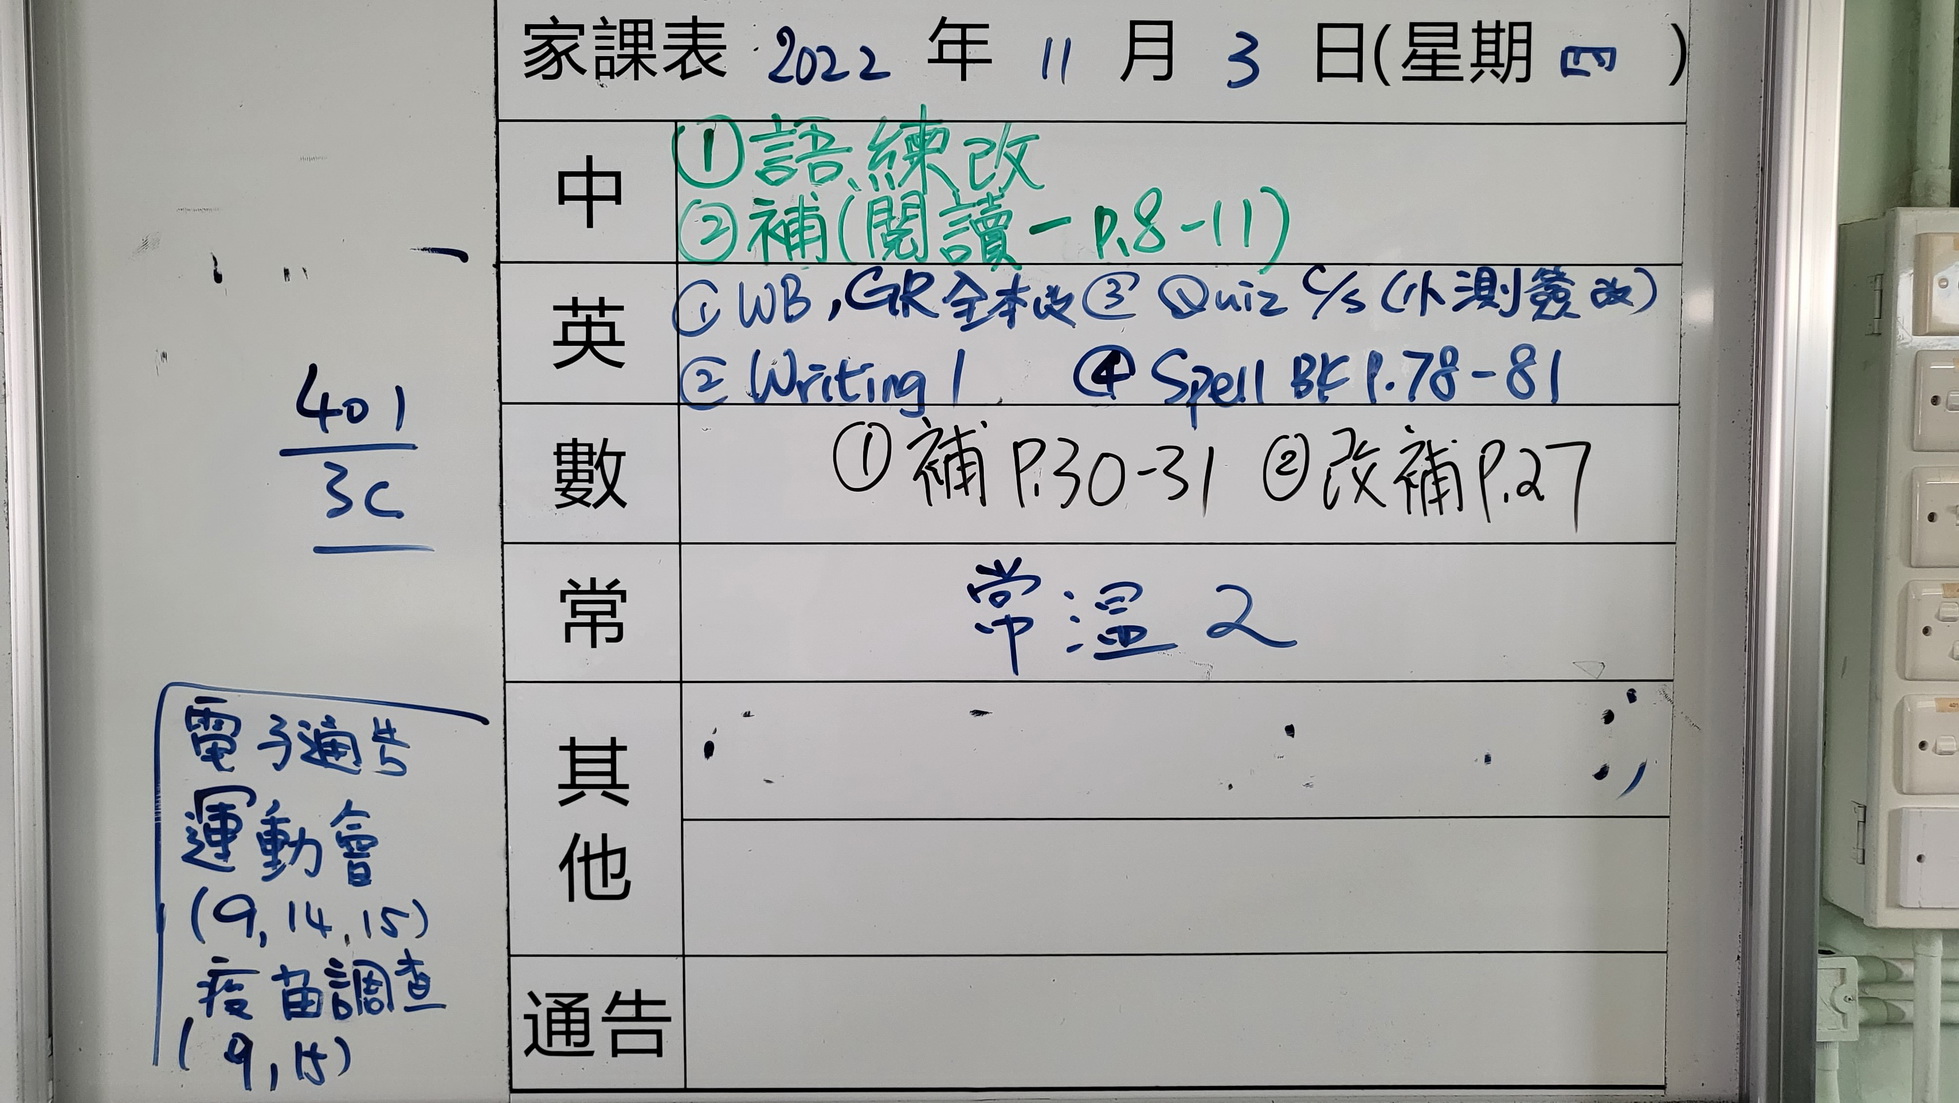 家課表 2022 年 11 月 3 日(星期 四 )
中
①語練改
②補(閱讀－P.8-11)
英
①WB,GR全本改 ③ Quiz C/S (小測簽改)
② Writing 1 ④ Spell BK P.78-81
數
①補 P.30-31 ②改補P.27
常
常溫 2
其他
通告
401
3C
電子通告
運動會
(9,14,15)
疫苗調查
(9,15)